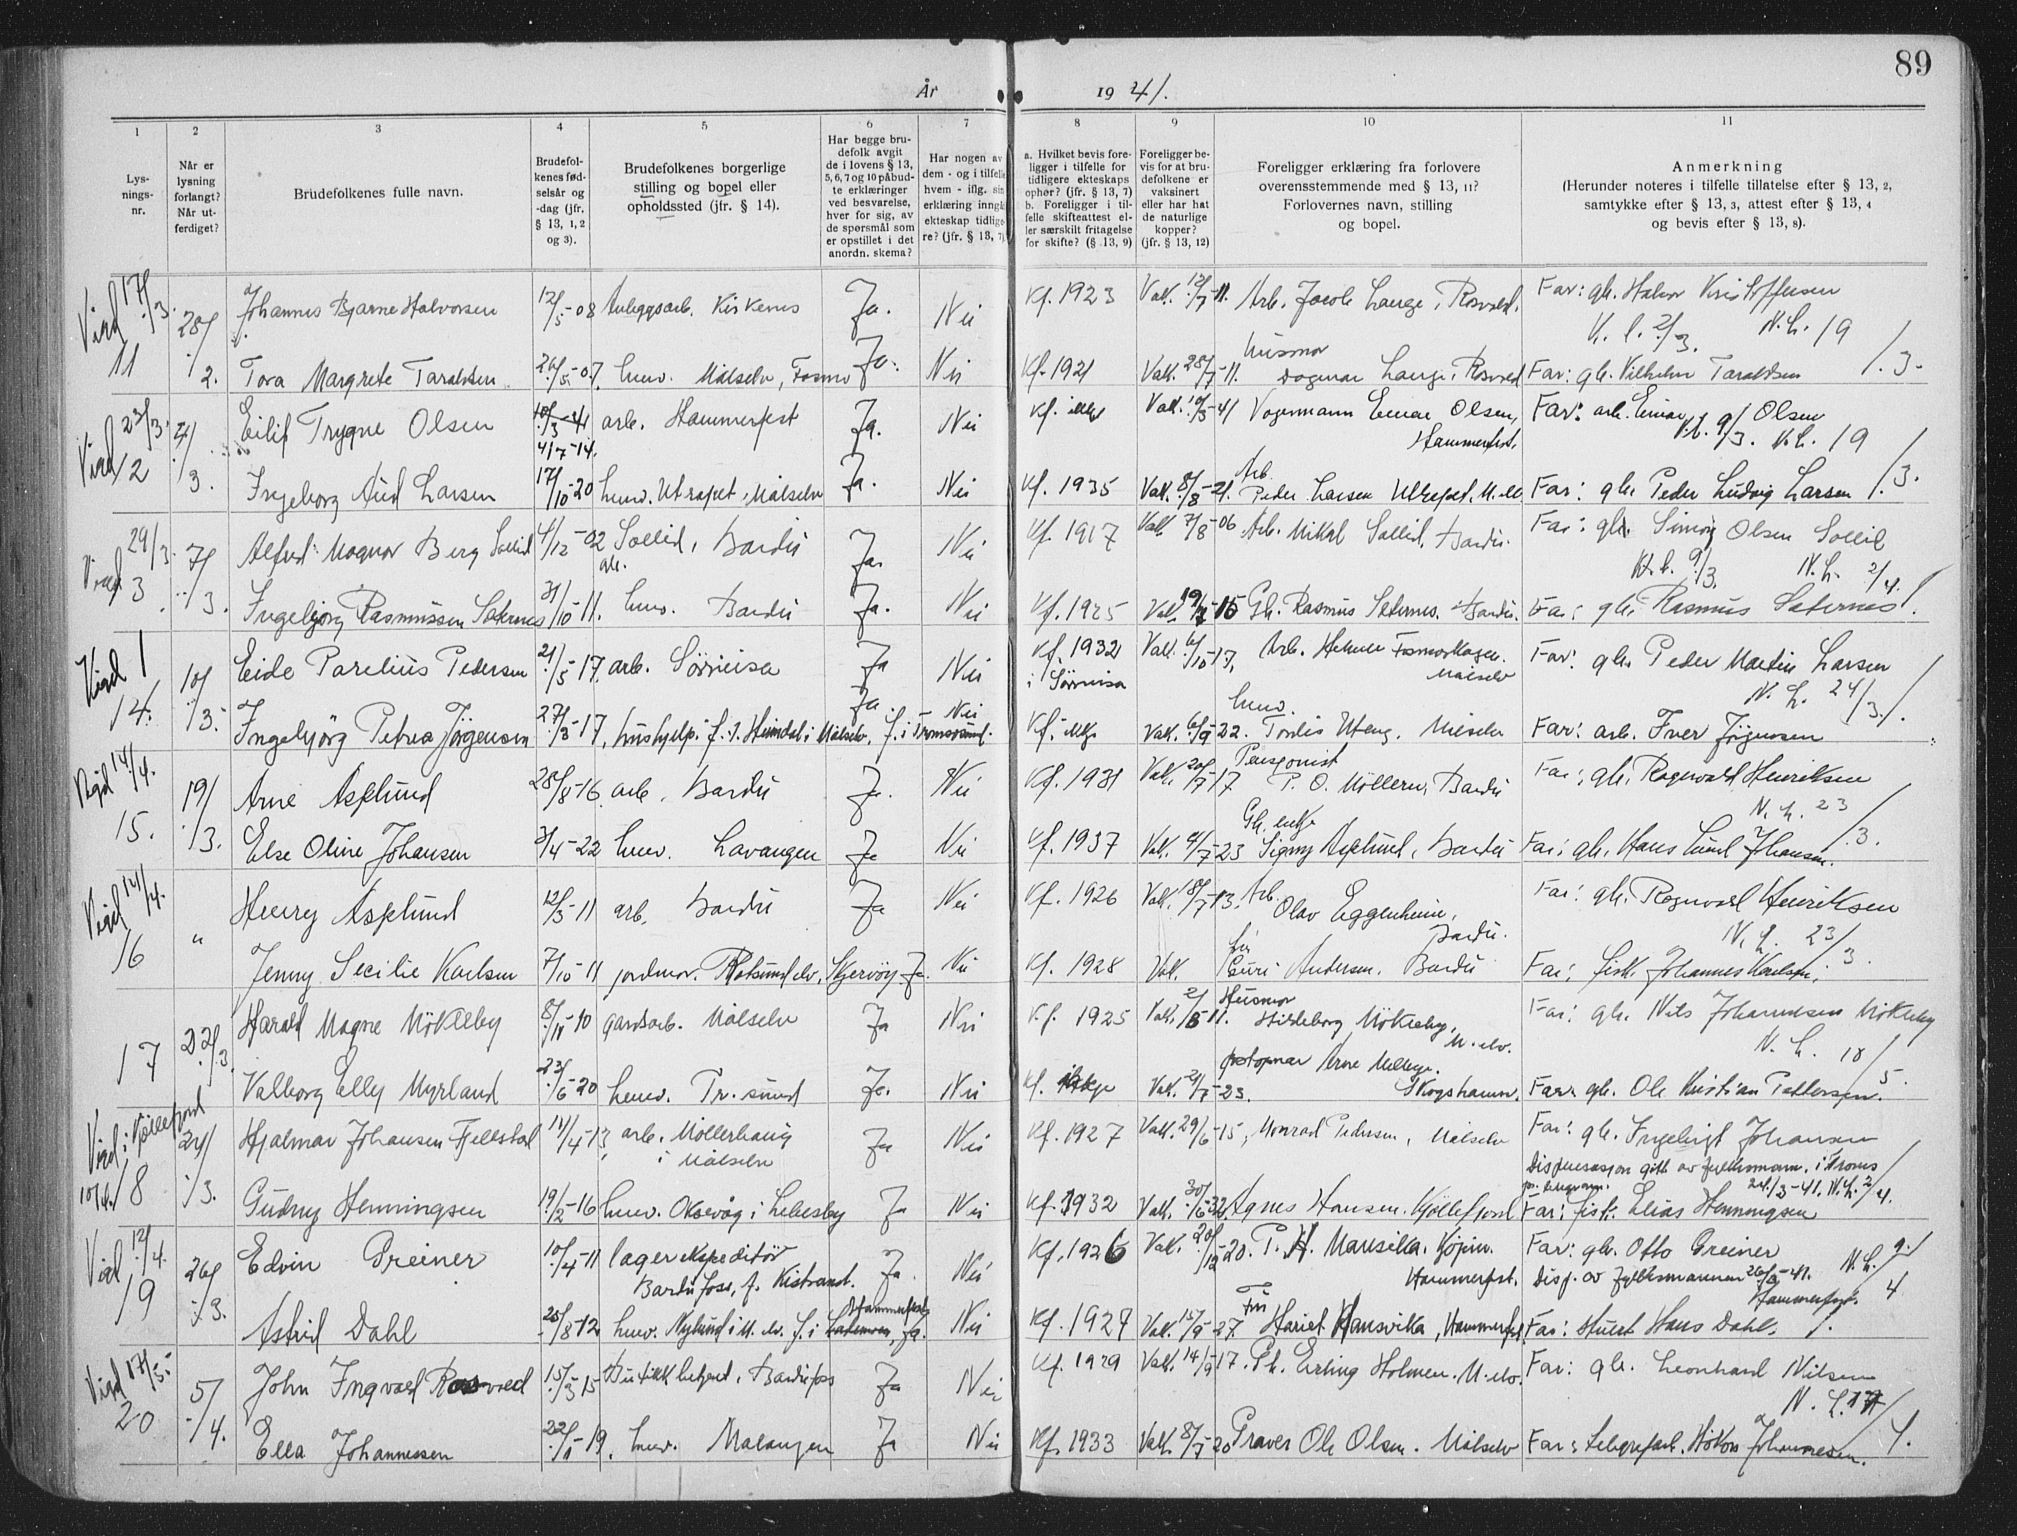 89
År 1941.
1 2 3 4 5 6 7 8 9 10 11
Lys-
nings-
nr.
Når er
lysning
forlangt?
Når ut-
ferdiget?
Brudefolkenes fulle navn.
Brudefol-
kenes fød-
selsår og
-dag (jfr.
§ 13, 1, 2
og 3).
Brudefolkenes borgerlige
stilling og bopel eller
opholdssted (jfr. § 14).
Har begge bru-
defolk avgit
de i lovens § 13,
5, 6, 7 og 10 påbud-
te erklæringer
ved besvarelse,
hver for sig, av
de spørsmål som
er opstillet i det
anordn. skema?
Har nogen av
dem - og i tilfelle
hvem - iflg. sin
erklæring inngå
ekteskap tidlige-
re? (jfr. § 13, 7)
a. Hvilket bevis fore-
ligger i tilfelle for
tidligere ekteskaps
ophør? (jfr. § 13, 7)
b. Foreligger i til-
felle skifteattest el-
ler særskilt fritagelse
for skifte? (§ 13, 9)
Foreligger be-
vis for at bru-
defolkene er
vaksinert
eller har hat
de naturlige
kopper?
(jfr. § 13, 12)
Foreligger erklæring fra forlovere
overensstemmende med § 13, 11?
Forlovernes navn, stilling
og bopel.
Anmerkning
(Herunder noteres i tilfelle tillatelse efter § 13, 2,
samtykke efter § 13, 3, attest efter § 13, 4
og bevis efter § 13, 8).
Viet 17/3. 11 28/2. Johannes Bjarne Halvorsen 12/5-08 Anleggsarb. Kirkenes Ja. Nei Kf. 1923 Vak. 12/7-11. Arb. Jacob Lange, Rosvold. Far: gb. Halvor Kristoffersen
K. l. 2/3. N. L. 19/3.
Tora Margrete Taraldsen 26/5-07. hmv. Målselv, Fosmo Ja. Nei Kf. 1921 Vak. 28/7-11. Husmor Dagmar Lange, Rosvold Far: gb. Vilhelm Taraldsen
Viet 23/3. 12 4/3. Eilif Trygve Olsen 10/3-41 4/7-14. arb. Hammerfest Ja. Nei Kf. ikke Vak. 10/3-41 Vognmann Einar Olsen, Hammerfest. Far: arb. Einar Olsen
K.l. 9/3. N.L. 19/3.
Ingeborg Aud Larsen 17/10-20 hmv. Utrapet, Målselv Ja. Nei Kf. 1935 Vak. 8/8-21. Arb. Peder Larsen Far: gb. Peder Ludvig Larsen
Viet 29/3. 13 7/3. Alfred Magnor Berg Sollid 4/12-02 Sollid, Bardu gb. Ja. Nei Kf. 1917 Vak. 7/8-06 Arb. Mikal Sollid, Bardu. Far: gb. Simon Olsen Sollid
K.l. 9/3. N.L. 2/4.
Ingebjørg Rasmussen Seternes 31/10-11. hmv. Bardu Ja. Nei Kf. 1925 Gb. Rasmus Seternes. Bardu. Far: gb. Rasmus Seternes
14. 10/3. Eide Parelius Pedersen 21/5-17. arb. Sørreisa Ja Nei Kf. 1932 i Sørreisa Vak. 6/10-17, Arb. Målselv Far: gb. Peder Martin Larsen
N. L. 24/3.
Ingebjörg Petrea Jörgensen 27/3-17, hushjelp. Målselv, f. i Tromsøsund. Ja Nei Kf. ikke Vak. 6/9-22. hmv. Tordis Uteng, Målselv Far: arb. Iver Jörgensen
Viet 14/4. 15. 19/3. Arne Asplund 28/8-16 arb. Bardu Ja. Nei Kf. 1931 Vak. 20/7-17 Pensjonist P. O. Möllern, Bardu Far: gb. Rognvald Henriksen
N. L. 23/3.
Else Oline Johansen 3/4-22 hmv. Lavangen Ja Nei Kf. 1937 Vak. 4/7-23 Gb. enke Signy Asplund, Bardu Far: gb. Hans Johansen.
Viet 14/4. 16 " Henry Asplund 12/3-11 arb. Bardu Ja Nei Kf. 1926 Vak. 18/7-13. Arb. Olav Eggenheim, Bardu. Far: gb. Rognvald Henriksen
N. L. 23/3.
Jenny Secilie Karlsen 7/10-11 jordmor. Rotsundelv, Skjervøy Ja. Nei Kf. 1928 Vak. Guri Andersen. Bardu Far: fisk. Johannes Karlsen.
17 22/3. Harald Magne Mökleby 8/11-10 gardsarb. Målselv Ja Nei Kf. 1925 Husmor Hildeborg Mökleby, M.elv. Far: gb. Nils Johannesen Mökleby
N. L. 10/5.
Valborg Elly Myrland 23/6-20 hmv. Tr. sund Ja. Nei Kf. ikke Vak. 21/7-23. postopnar Arne Skogshamn. Far: gb. Ole Kristian Pettersen.
Viet i Kjøllefjord 18 24/3. Hjalmar Johansen Fjellstad 14/4-13, arb. Möllerhaug i Målselv Ja Nei Kf. 1927 Vak. 29/6-15, Monrad Pedersen, Målselv Far: gb. Ingebrigt Johansen
Dispensasjon gitt av fylkesmann. i Troms
24/3-41. N.L. 2/4.
Gudny Henningsen 19/2-16 hmv. Oksevåg i Lebesby Ja Nei Kf. 1932 Vak. 30/6-32 Agnes Hansen. Kjøllefjord Far: fisk. Elias Henningsen
Viet 12/4. 19 26/3. Edvin Greiner 10/4-11 lagerekspeditör Bardufoss, f. Kistrand. Ja. Nei Kf. 1926 Vak. 20/12-20. Hammerfest. Far: gb. Otto Greiner
Disp. av fylkesmannen N.L. 9/4
Astrid Dahl 25/8-12 hmv. Nylund i M.elv. f. i Hammerfest, Ja. Nei Kf. 1927 Vak. 15/9-27. Fru Hansvika, Hammerfest Far: Hans Dahl.
Viet 17/5. 20 5/4. John Ingvald Rosvold 15/3-15 Butikkbetjent, Bardufoss Ja Nei Kf. 1929 Vak. 14/9-17. Gb. Erling Holmen. M.elv. Far: gb. Leonhard Nilsen
N. L. 17/4.
Ella Johannessen 22/11-19. hmv. Malangen Ja Nei Kf. 1933 Vak. 8/7-20 Ole Olsen. Målselv Far: telegrafarb. Håkon Johannesen.